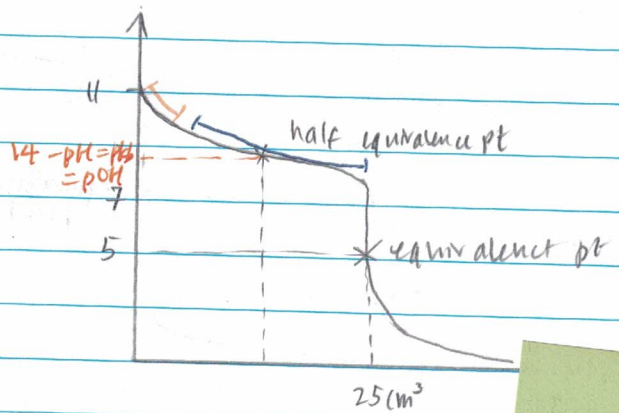 11
half equivalence pt
14 - pH = pKb
= pOH
7
5
equivalenct pt
25cm³